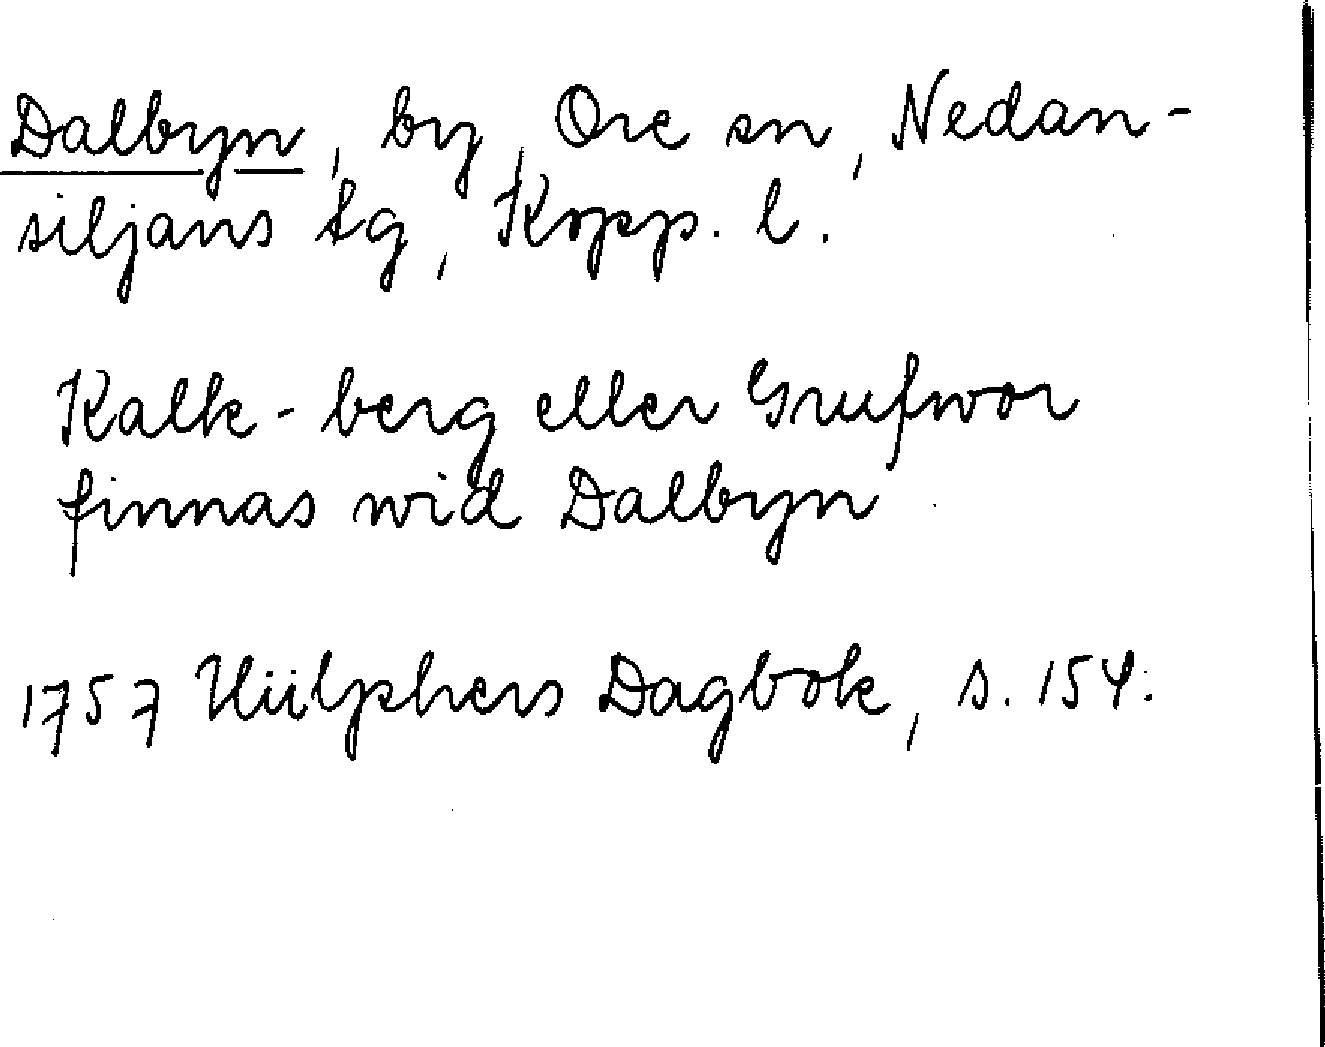 Dalbyn, by, Ore sn, Nedan-
siljans tg, Kopp. l.
Kalk-berg eller Grufwor
finnas wid Dalbyn
1757 Hülphers Dagbok, s. 154.